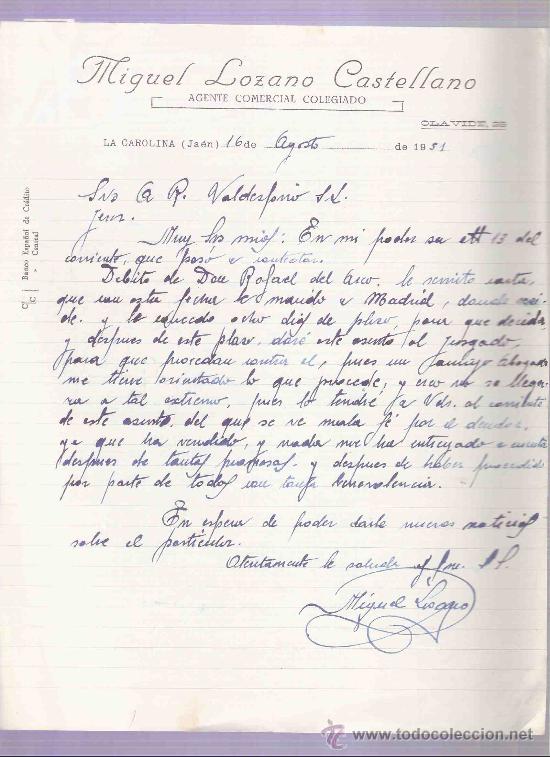 Miguel Lozano Castellano
AGENTE COMERCIAL COLEGIADO
OLAVIDE, 28
LA CAROLINA (Jaén) 16 de Agosto de 1951
C/C Banco Español de Crédito
" Central
Sres A. R. Valdespino S.L.
Jerez.
Muy Srs mios: En mi poder su att 13 del
corriente, que paso a contestar.
Debito de Don Rafael del Arco. le remito carta
que con esta fecha le mando a Madrid, donde resi-
de. y le concedo ocho dias de plazo, para que decida
y despues de este plazo, daré este asunto al Juzgado,
para que procedan contra el, pues un amigo abogado
me tiene orientado lo que procede, y creo no se llega-
ra a tal extremo, pues lo tendré a Vds. al corriente
de este asunto. del que se ve mala fé por el deudor,
ya que ha vendido, y nada me ha entregado a cuenta
despues de tantas promesas. y despues de haber procedido
por parte de todos con tanta benevolencia.
En espera de poder darle nuevas noticias
sobre el particular.
Atentamente le saluda
Miguel Lozano
todocoleccion
www.todocoleccion.net